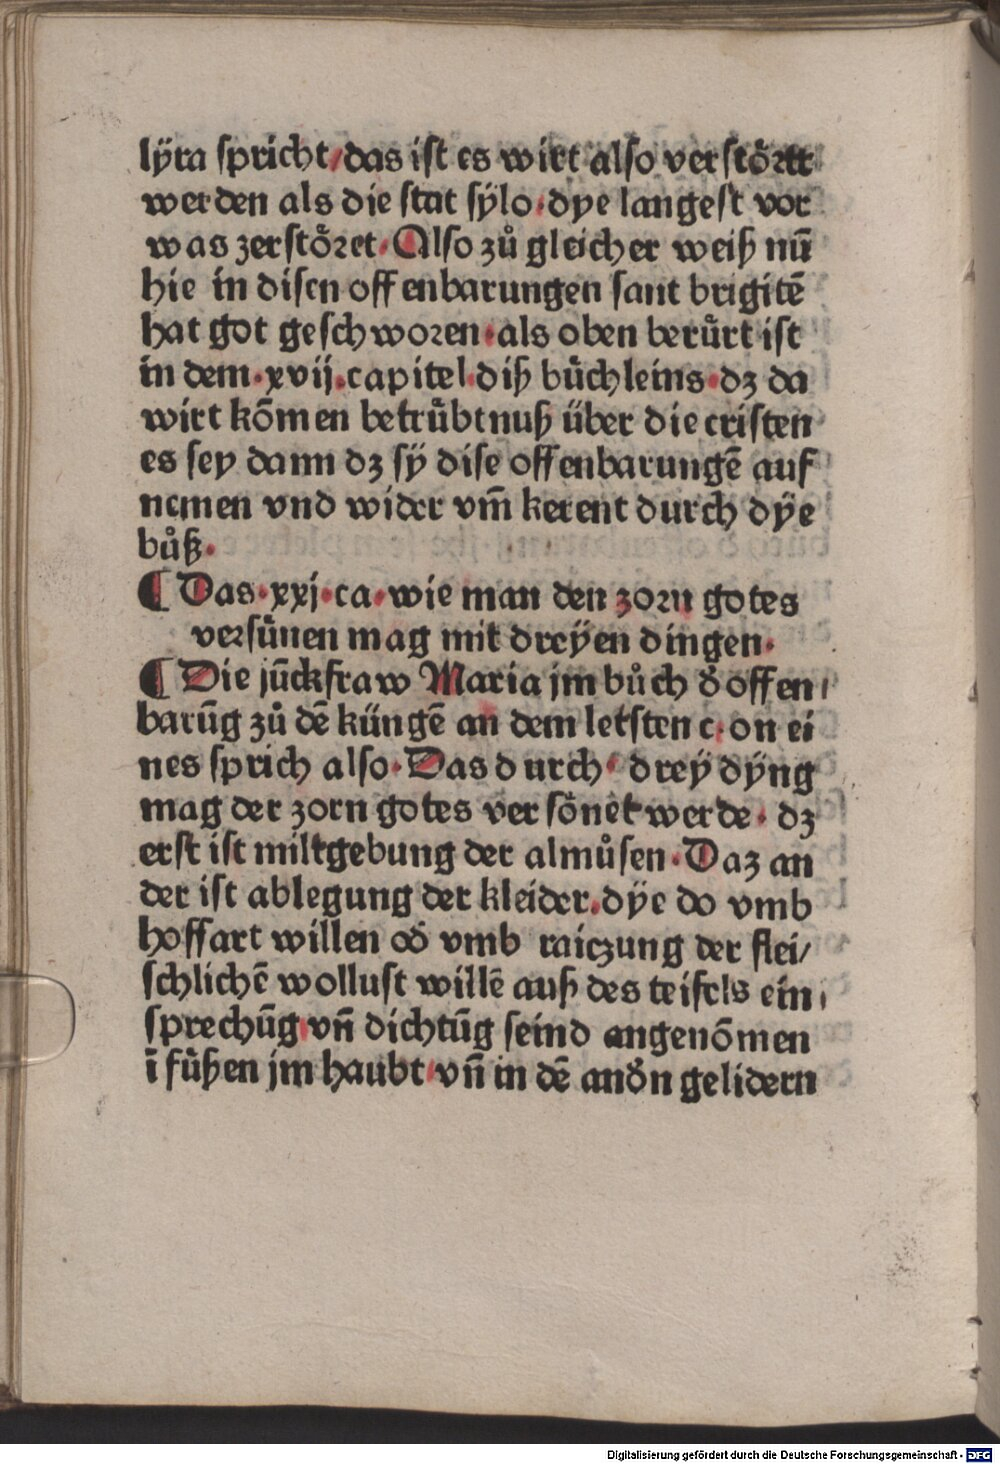 lÿra spricht/das ist es wirt also verstörtt
werden als die stat sÿlo·dye langest vor
was zerstöret·Also zů gleicher weiß nū
hie in disen offenbarungen sant brigitē
hat got geschworen·als oben berürt ist
in dem·xvij·capitel·diß büchleins·dz da
wirt kōmen betrübtnuß über die cristen
es sey dann dz sÿ dise offenbarungē auf
nemen vnd wider vm̄ kerent durch dÿe
bůß·
¶ Das·xxj·ca·wie man den zorn gotes
versünen mag mit dreÿen dingen·
¶ Die jūckfraw Maria jm bůch d̕ offen/
barūg zů dē küngē an dem letsten c·on ei
nes sprich also·Das durch/ dreÿ dÿng
mag der zorn gotes versönet werde· dz
erst ist miltgebung der almůsen·Daz an
der ist ablegung der kleider·dÿe do vmb
hoffart willen od̕ vmb raiczung der flei/
schlichē wollust willē auß des teifels ein/
sprechūg/vn̄ dichtūg seind angenōmen
ī füßen jm haubt/vn̄ in dē and̕n gelidern
Digitalisierung gefördert durch die Deutsche Forschungsgemeinschaft - DFG